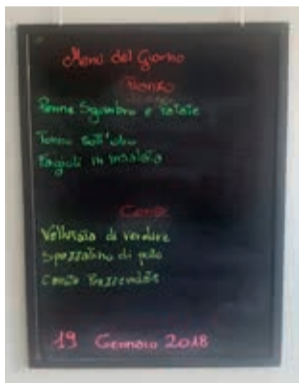 Menù del Giorno
Pranzo
Penne Sgombro e Patate
Tonno sott'olio
Fagioli in insalata
Cena
Vellutata di verdure
Spezzatino di pollo
19 Gennaio 2018